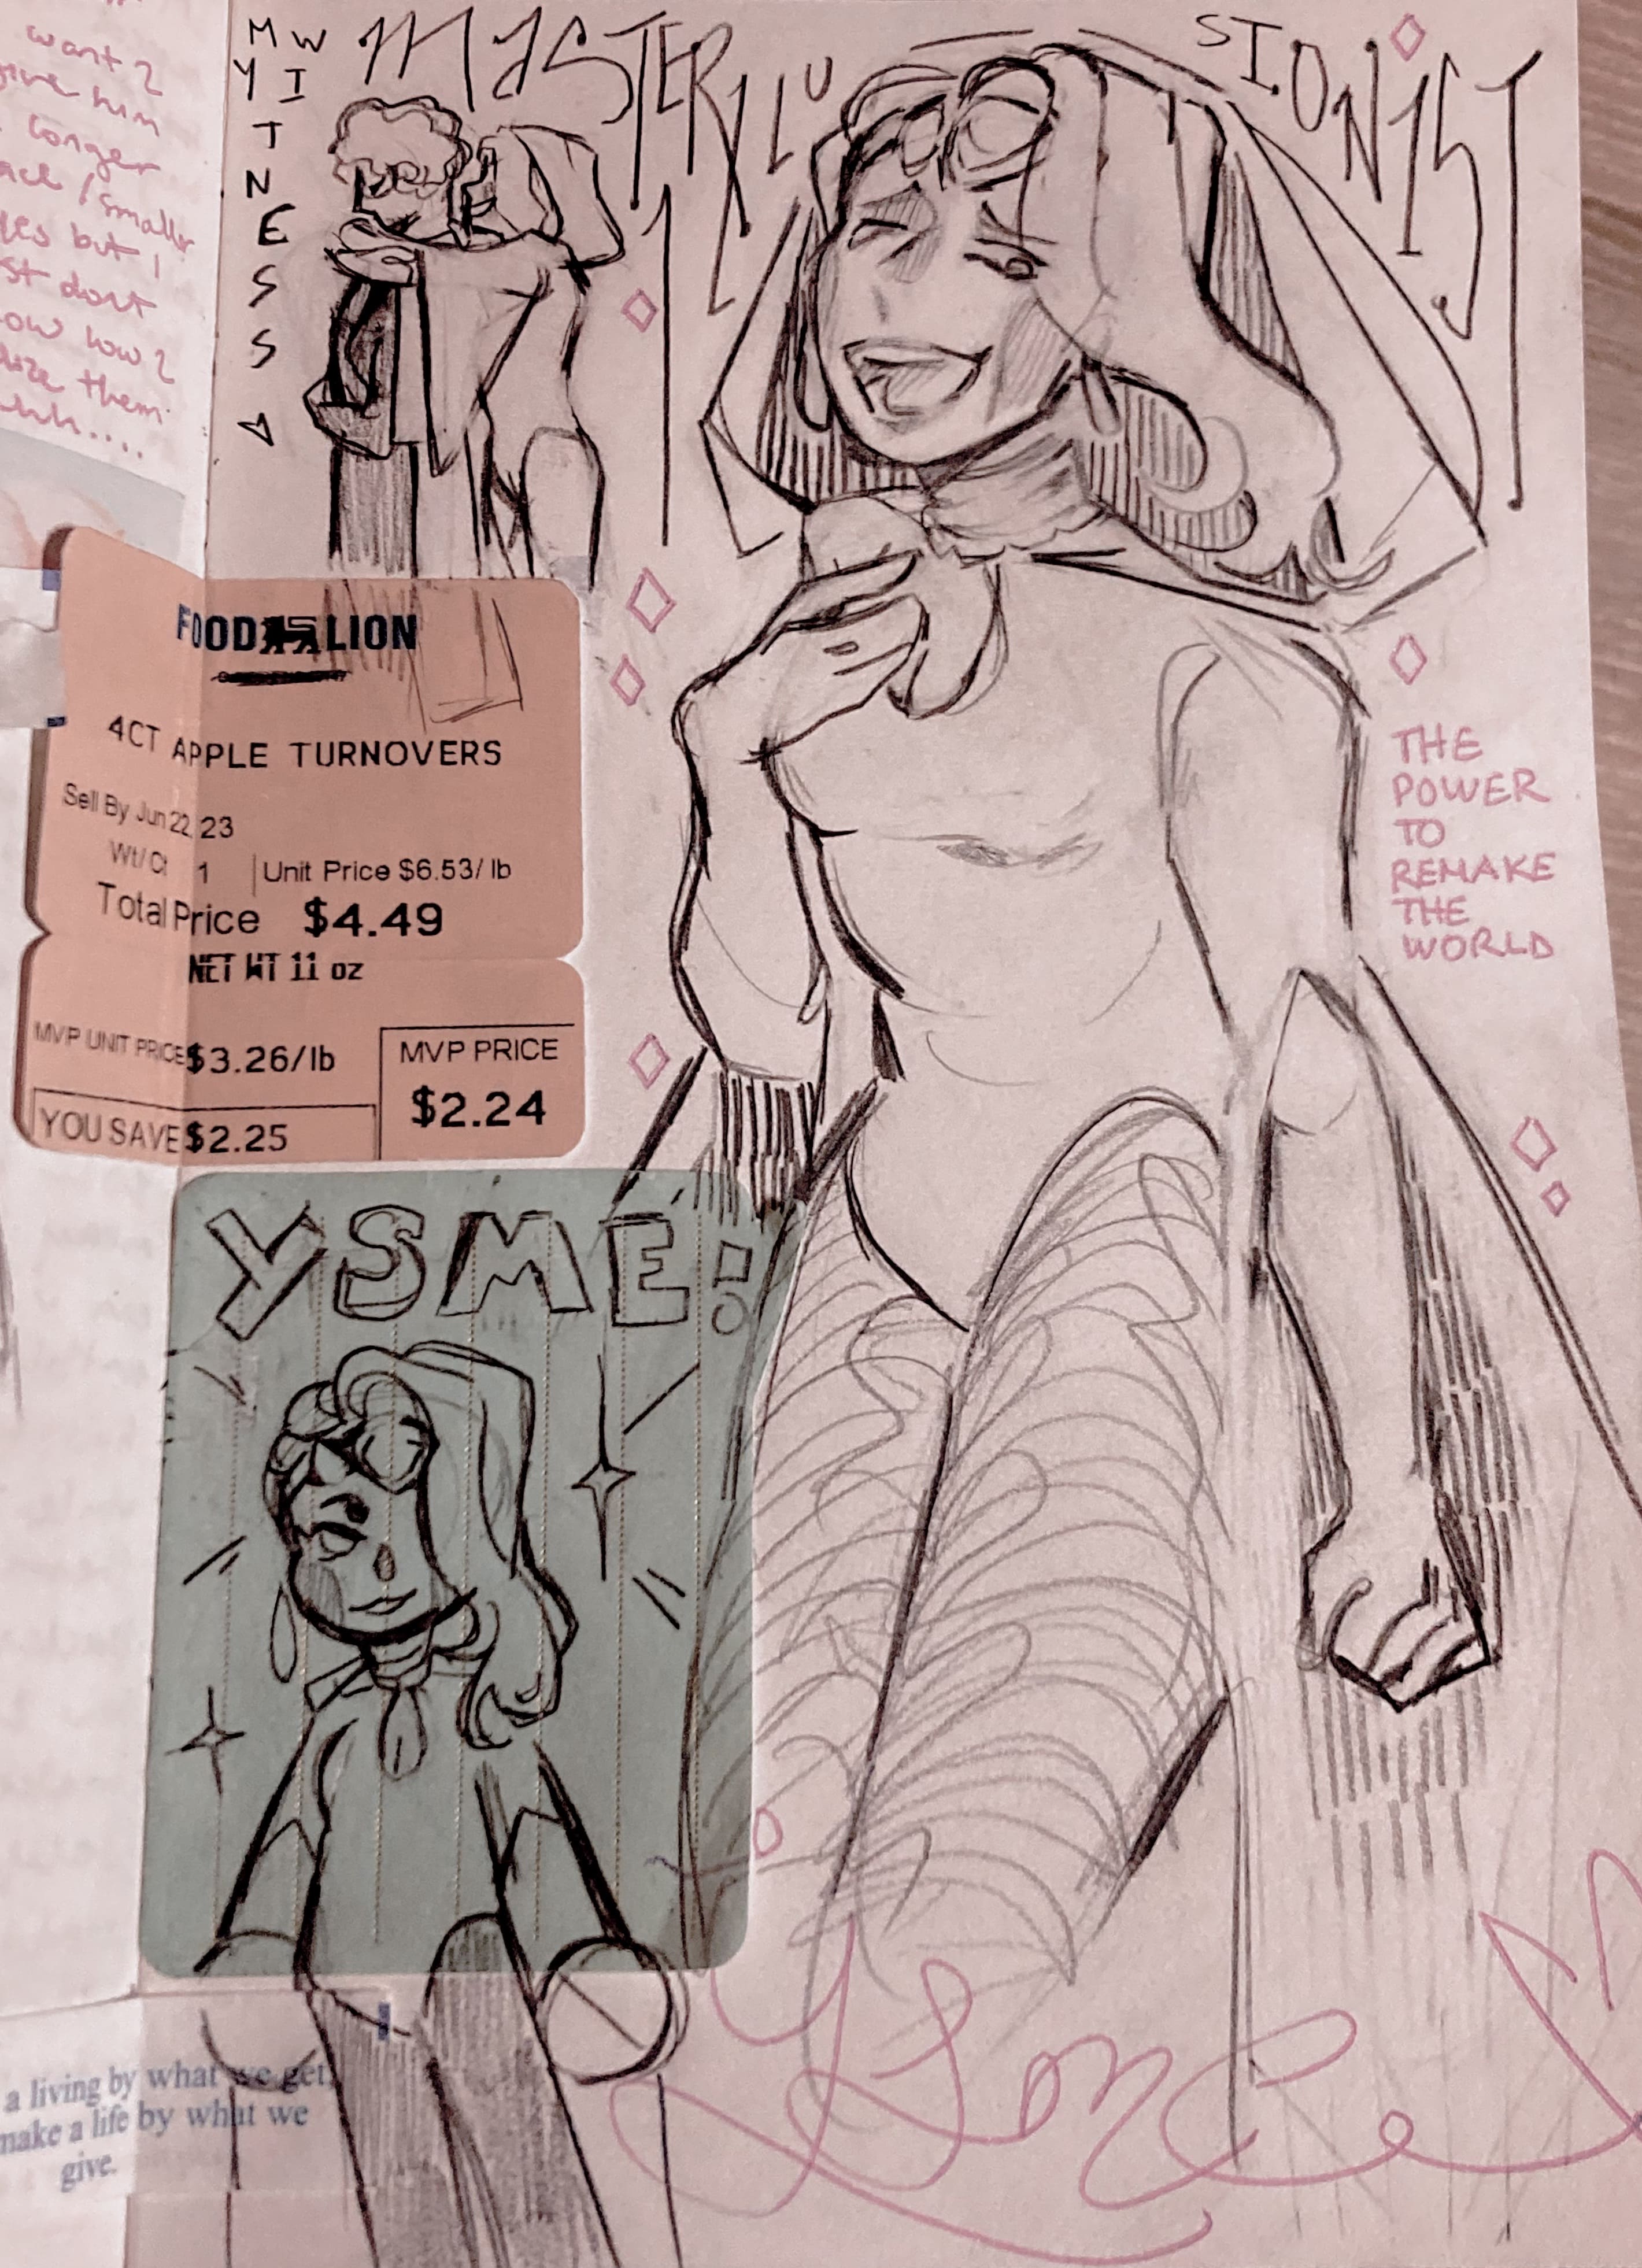 want 2
give him
longer
/ smaller
but I
just don't
how 2
them
MY WITNESS
MASTER ILLUSIONIST
FOOD LION
4CT APPLE TURNOVERS
Sell By Jun 22, 23
Wt/Ct 1 Unit Price $6.53/lb
Total Price $4.49
NET WT 11 oz
MVP UNIT PRICE $3.26/lb
MVP PRICE
$2.24
YOU SAVE $2.25
THE
POWER
TO
REMAKE
THE
WORLD
YSMÉ
a living by what we get,
make a life by what we
give.